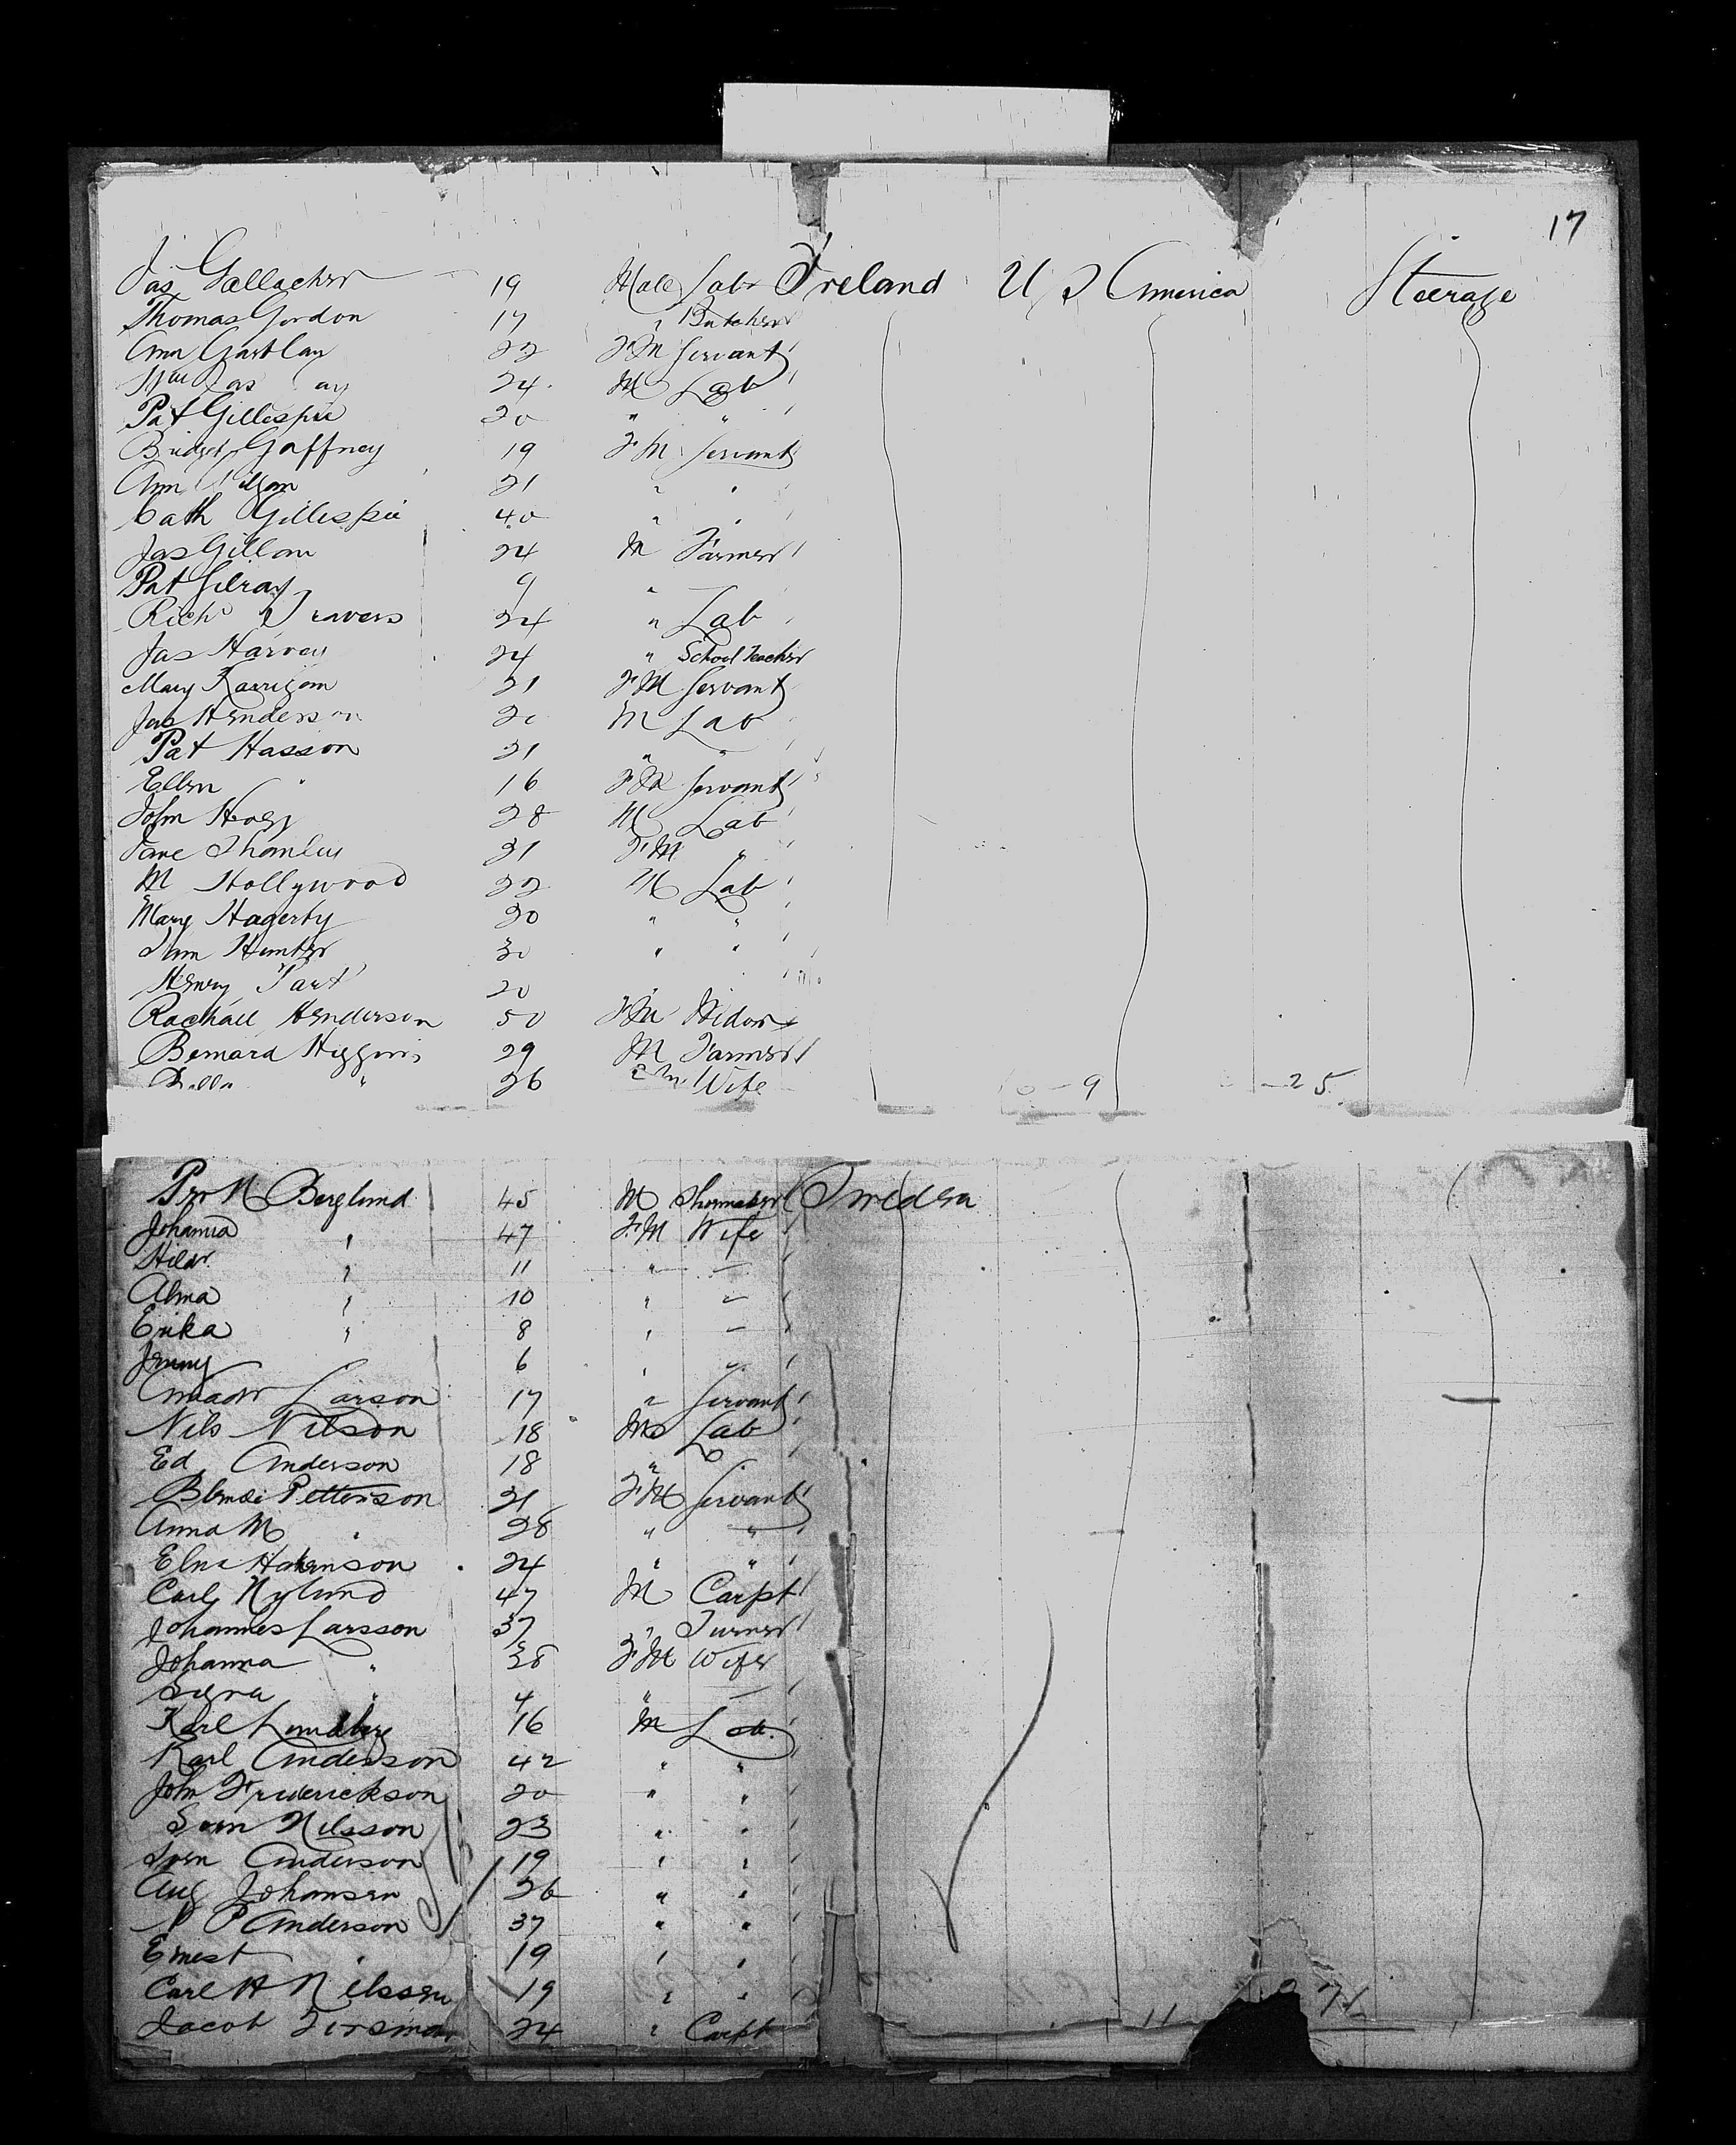 17
Jas Gallacher 19 Male Labr Ireland U S America Steerage
Thomas Gordon 17 " Butcher
Ann Gartlay 22 FM Servant
Wm 24 M Lab
Pat Gillespie 20 " "
Bridget Gaffney 19 FM Servant
Ann 21 " "
Cath Gillespie 40 " "
Jas Gillon 24 M Farmer
Pat Gilray 9 "
Richd Travers 24 " Lab
Jas Harvey 24 " School Teacher
Mary Karrigan 21 FM Servant
Jas Henderson 20 M Lab
Pat Hasson 21 " "
Ellen " 16 FM Servant
John Hogg 28 M Lab
Jane 21 FM "
M Hollywood 22 M Lab
Mary Hagerty 20 " "
Sam Hunter 30 " "
Henry 20 "
Rachael Henderson 50 FM Widow
Bernard Higgins 29 M Farmer
" 26 Wife 9 25
Per N Berglund 45 M Shoemaker Sweden
Johanna " 47 FM Wife
" 11 " -
Alma " 10 " -
Erika " 8 " -
Jenny 6 " "
Larson 17 " Servant
Nils Nilson 18 M Lab
Ed Anderson 18 "
Petterson 21 FM Servant
Anna M " 28 " "
Elna 24 " "
Carl Nylund 47 M Carpt
Johannes Larsson 37 " Turner
Johanna " 38 FM Wife
" 4 " -
Karl Lundberg 16 M Lab
Karl Anderson 42 " "
John Frederickson 20 " "
Sven Nilsson 23 " "
Sven Anderson 19 " "
Aug Johansen 26 " "
N P Anderson 37 " "
Ernest " 19 " "
Carl A Nelssen 19 " "
Jacob 24 " Carpt 11